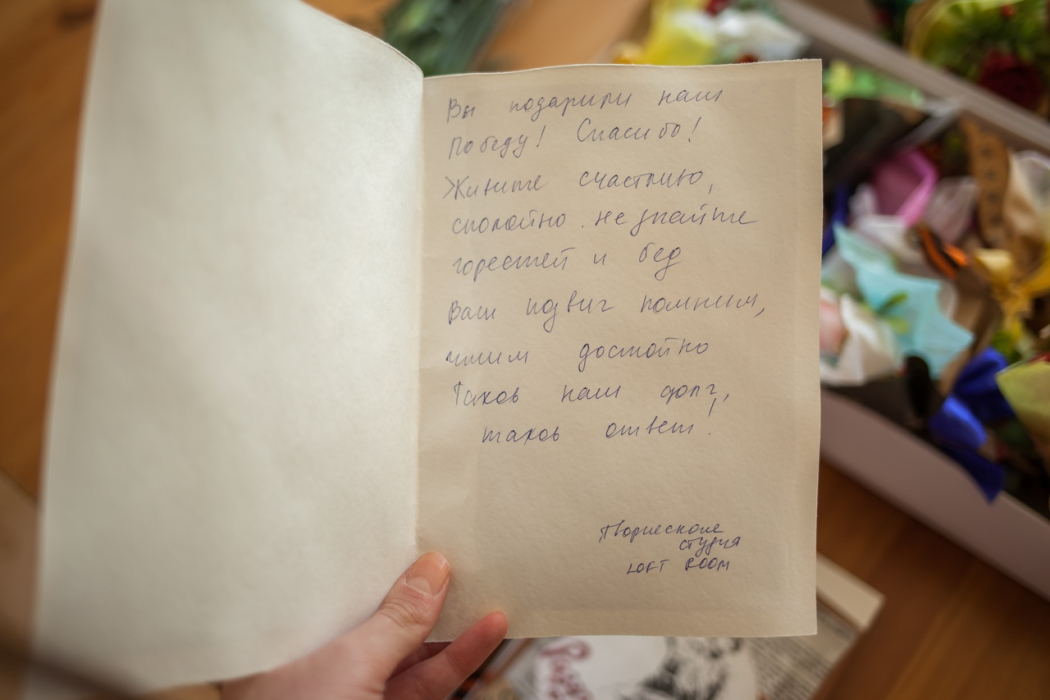 Вы подарили нам
Победу! Спасибо!
Живите счастливо,
спокойно. не знайте
горестей и бед
Ваш подвиг помним,
чтим достойно
Таков наш долг,
таков ответ!
Творческая
студия
LOFT ROOM